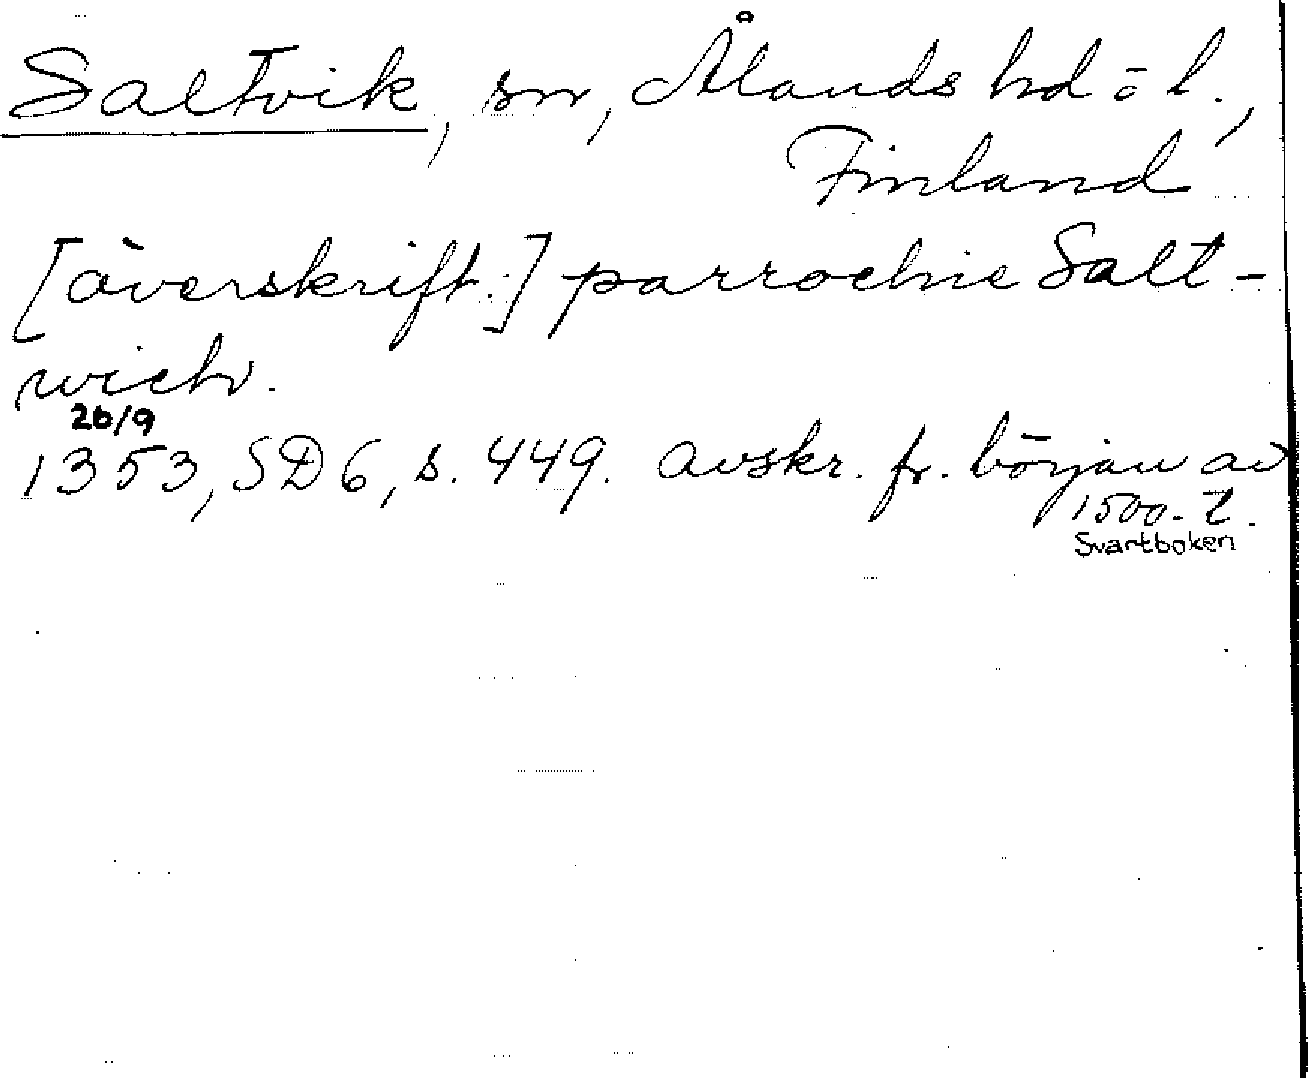 Saltvik, sn, Ålands hd o l.,
Finland
[överskrift:] parrochie Salt-
wich.
26/9
1353, SD 6, s. 449. Avskr. fr. början av
1500-t.
Svartboken